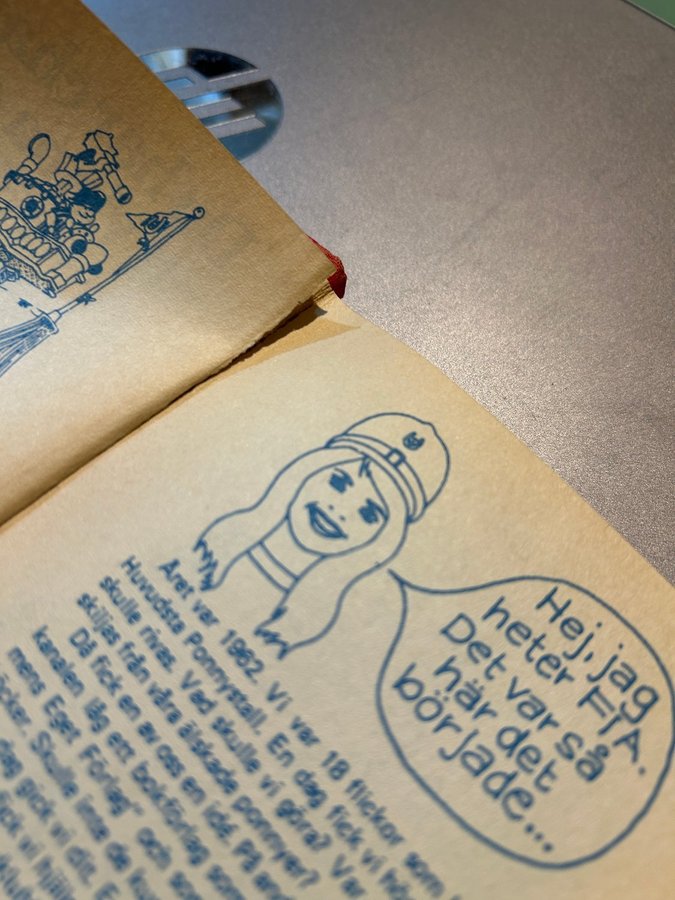 Hej, jag
heter FIA.
Det var så
här det
började...
Året var 1962. Vi var 18 flickor som
Huvudsta Ponnystall. En dag fick vi
skulle rivas. Vad skulle vi göra? Var
skiljas från våra älskade ponnyer?
Då fick en av oss en idé. På
kanalen låg ett bokförlag som
mens Eget Förlag" och som
Skulle inte de
gick vi dit.
fick vi